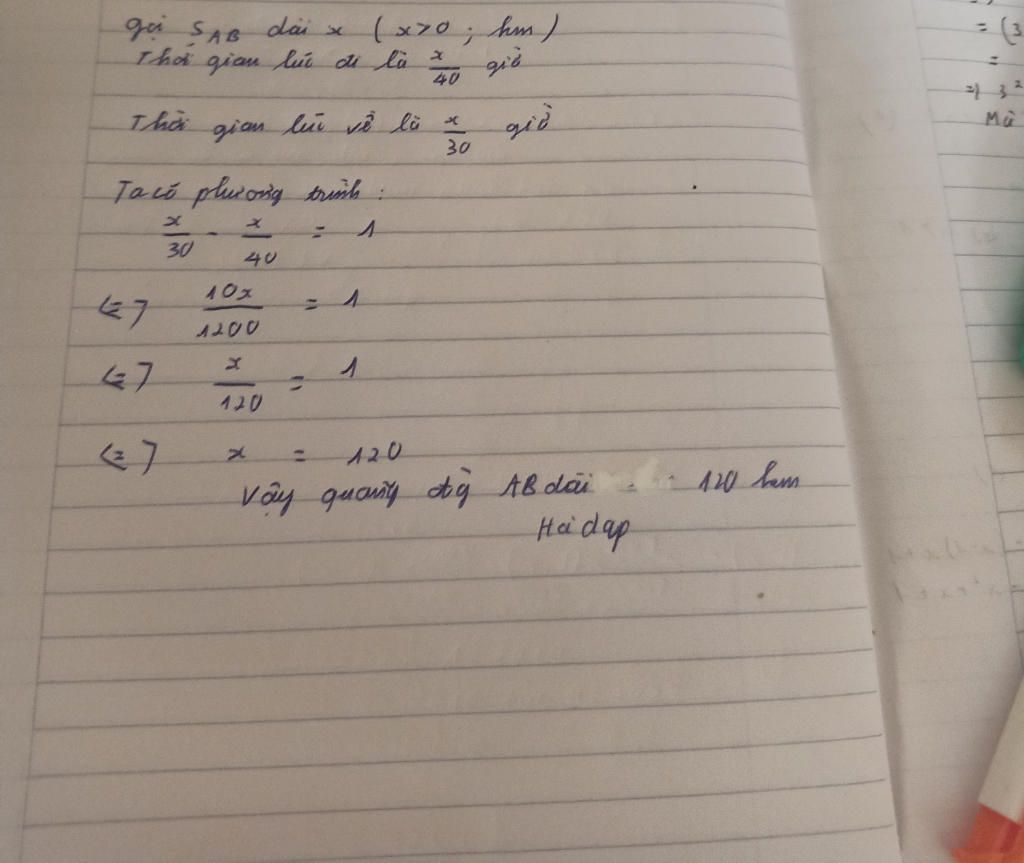 gọi S_AB dài x ( x>0 ; km )
Thời gian lúc đi là x/40 giờ
Thời gian lúc về là x/30 giờ
Ta có phương trình :
x/30 - x/40 = 1
<=> 10x/1200 = 1
<=> x/120 = 1
<=> x = 120
Vậy quãng đg AB dài 120 km
= (3
=
=> 3²
Mà